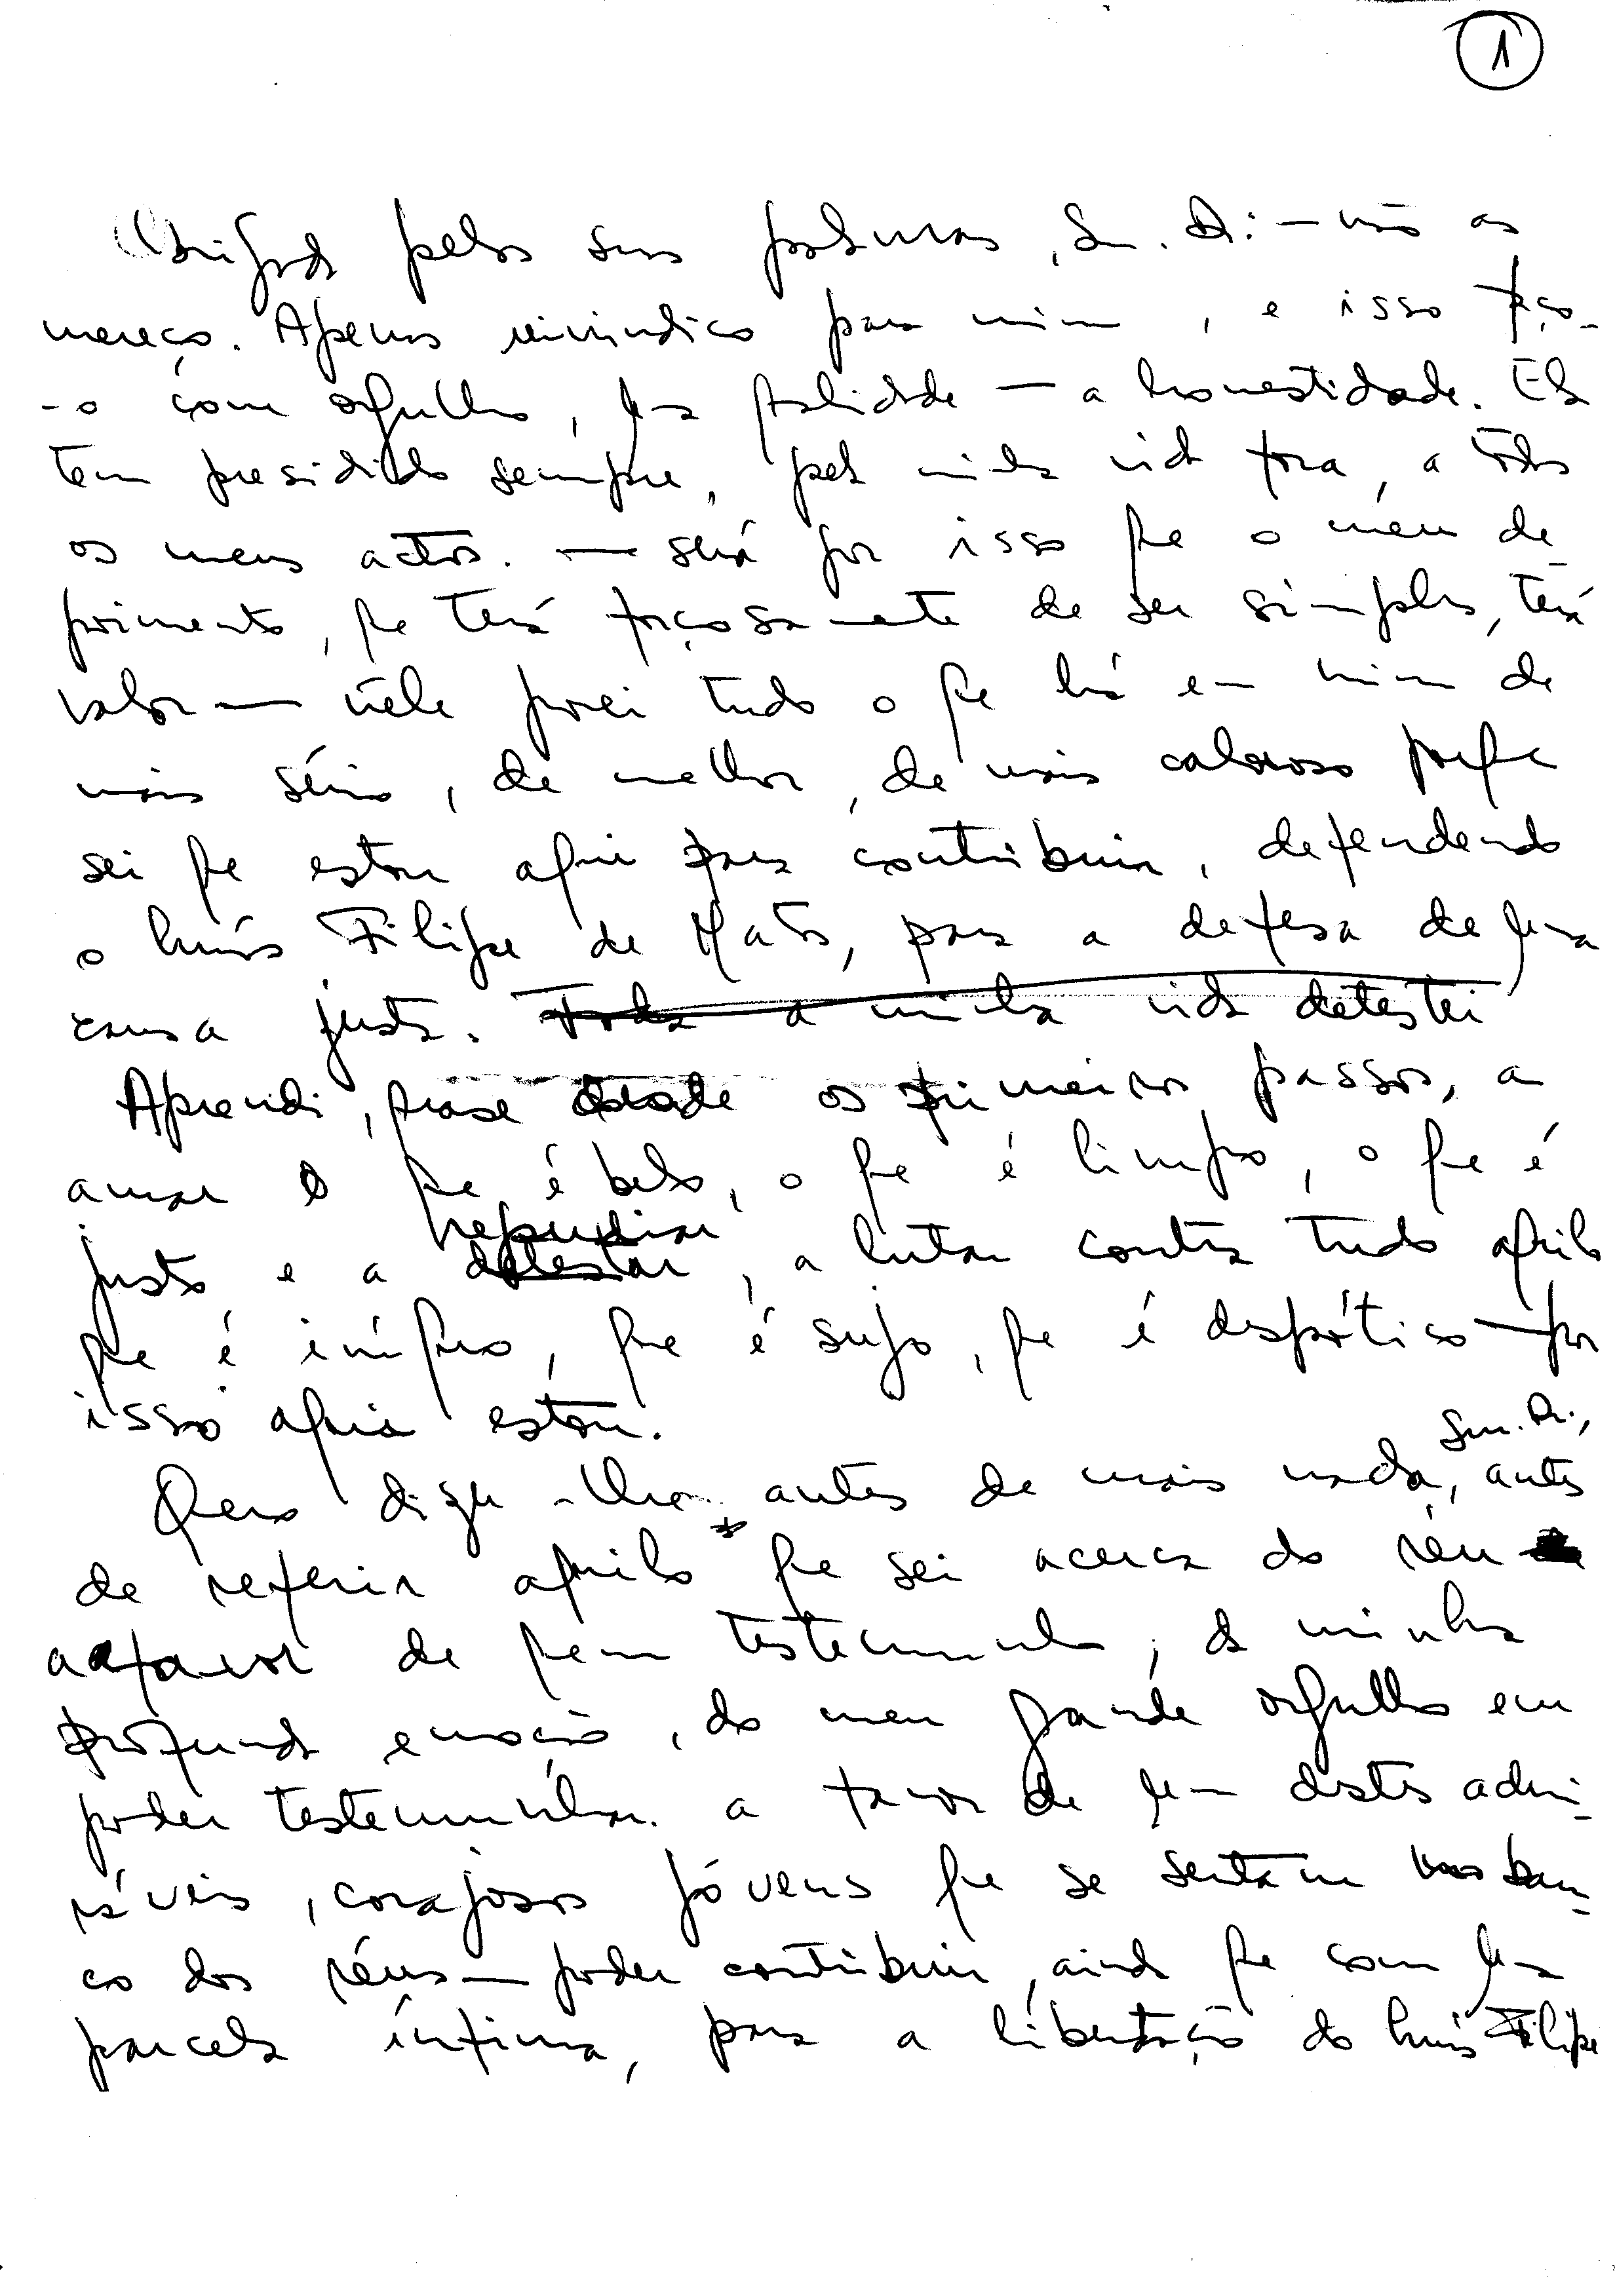 1
Obrigada pelas suas palavras, Sr. Dr: — não as
mereço. Apenas reivindico para mim, e isso faço-
-o com orgulho, uma qualidade — a honestidade. Ela
tem presidido sempre, pela minha vida fora, a todos
os meus actos. — será por isso que o meu de-
poimento, que terá forçosamente de ser simples, terá
valor — nêle porei tudo o que há em mim de
mais sério, de melhor, de mais caloroso porque
sei que estou aqui para contribuir, defendendo
o Luís Filipe de Matos, para a defesa de uma
causa justa. Toda a minha vida detestei
Aprendi, quase desde os primeiros passos, a
amar o que é belo, o que é limpo, o que é
repudiar
justo e a detestar, a lutar contra tudo aquilo
que é iníquo, que é sujo, que é despótico — por
isso aqui estou.
Sr. Dr.,
Quero dizer-lhe antes de mais nada, antes
de referir aquilo que sei acerca do réu
a favor de quem testemunho, da minha
profunda emoção, do meu grande orgulho em
poder testemunhar a favor de um destes admi-
ráveis, corajosos jóvens que se sentam no ban-
co dos réus — poder contribuir, ainda que com uma
parcela ínfima, para a libertação do Luís Filipe